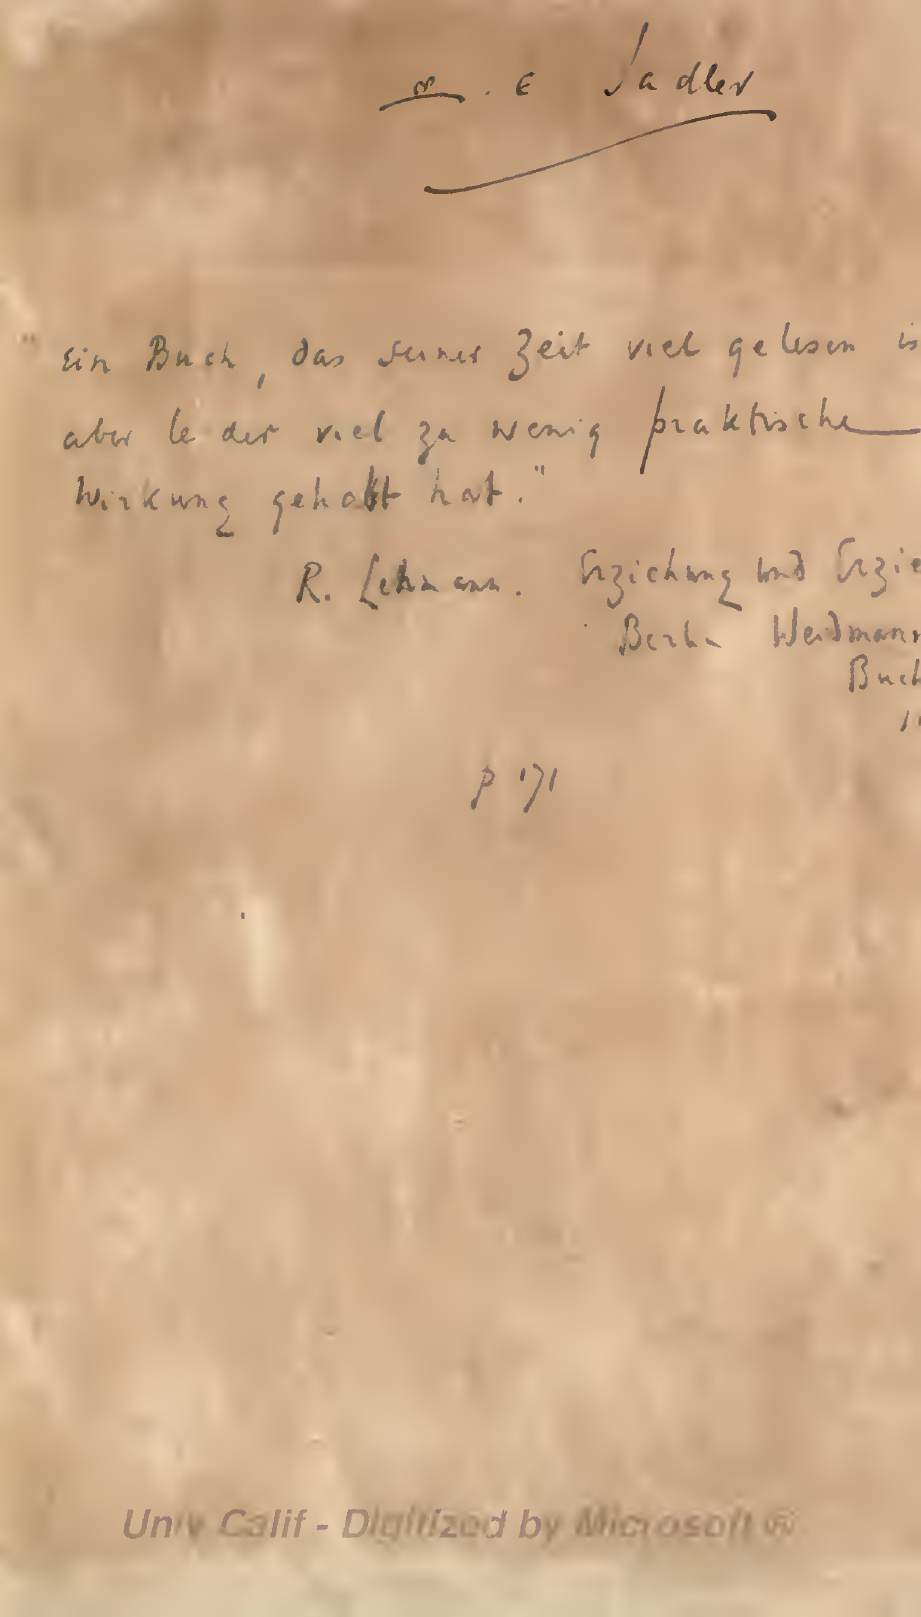 M. E Sadler
"Ein Buch, das seiner Zeit viel gelesen is
aber leider viel zu wenig praktische
Wirkung gehabt hat."
R. Lehmann. Erziehung und Erzie
Berlin Weidmann
Buch
p 171
Univ Calif - Digitized by Microsoft ®